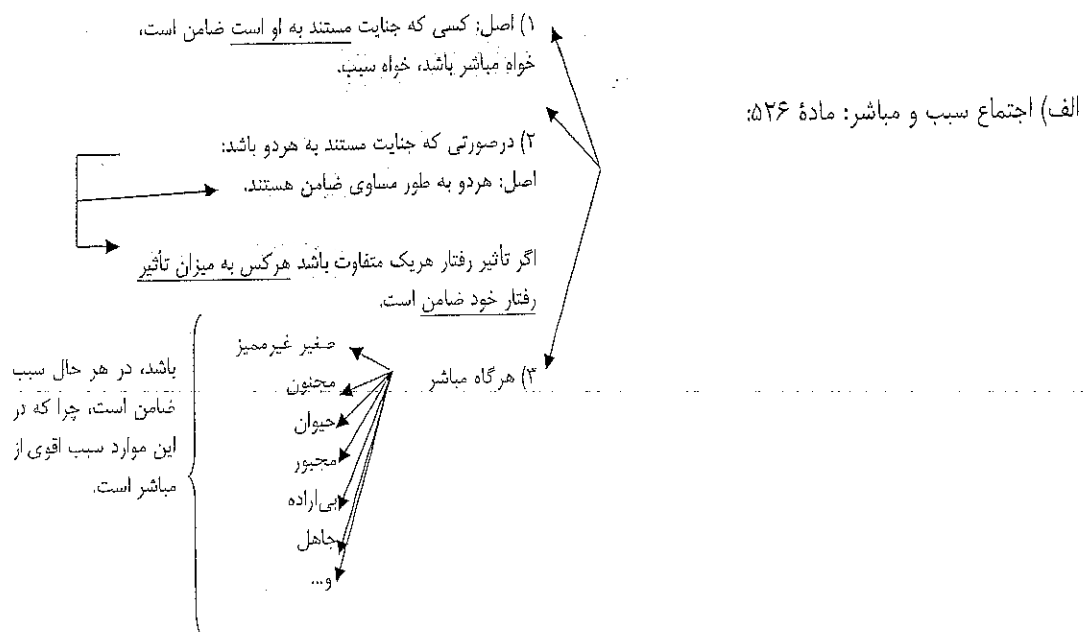 الف) اجتماع سبب و مباشر: مادۀ ۵۲۶:
۱) اصل: کسی که جنایت مستند به او است ضامن است،
خواه مباشر باشد، خواه سبب.
۲) درصورتی که جنایت مستند به هردو باشد:
اصل: هردو به طور مساوی ضامن هستند.
اگر تأثیر رفتار هریک متفاوت باشد هرکس به میزان تأثیر
رفتار خود ضامن است.
۳) هرگاه مباشر
صغیر غیرممیز
مجنون
حیوان
مجبور
بی‌اراده
جاهل
و...
باشد، در هر حال سبب
ضامن است، چرا که در
این موارد سبب اقوی از
مباشر است.